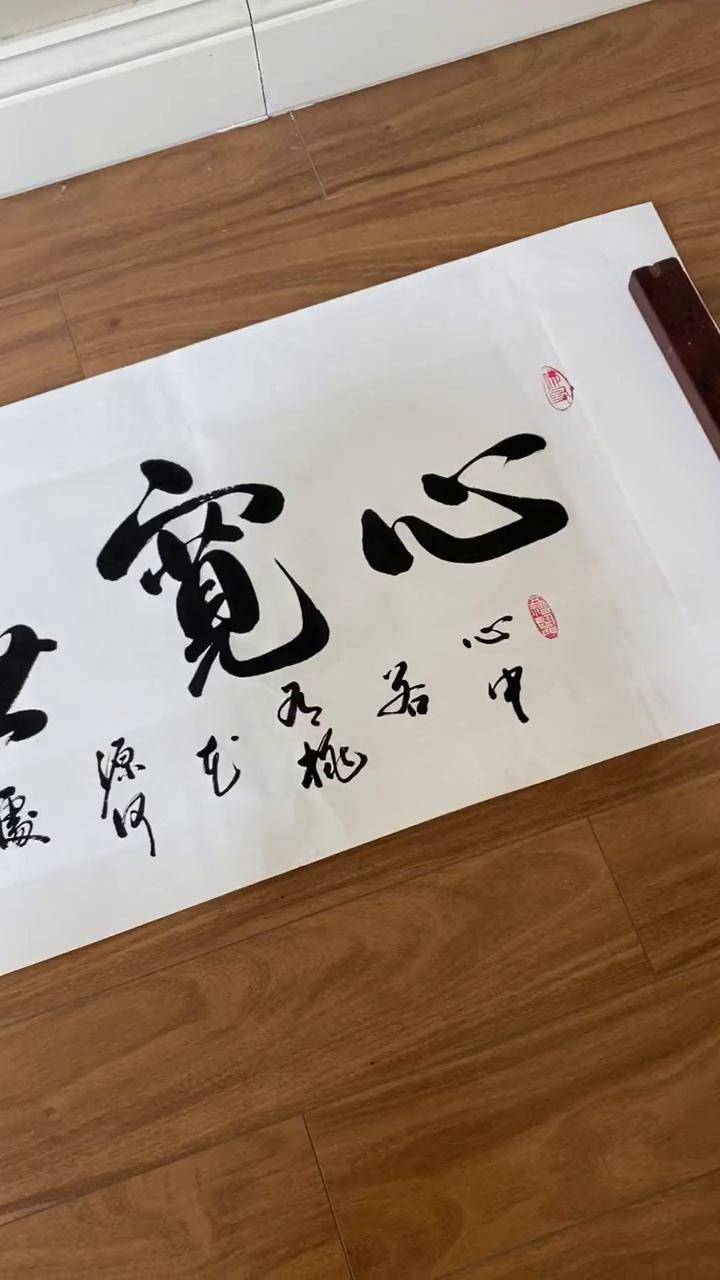 心寬
心中
若
有桃
花
源何
處